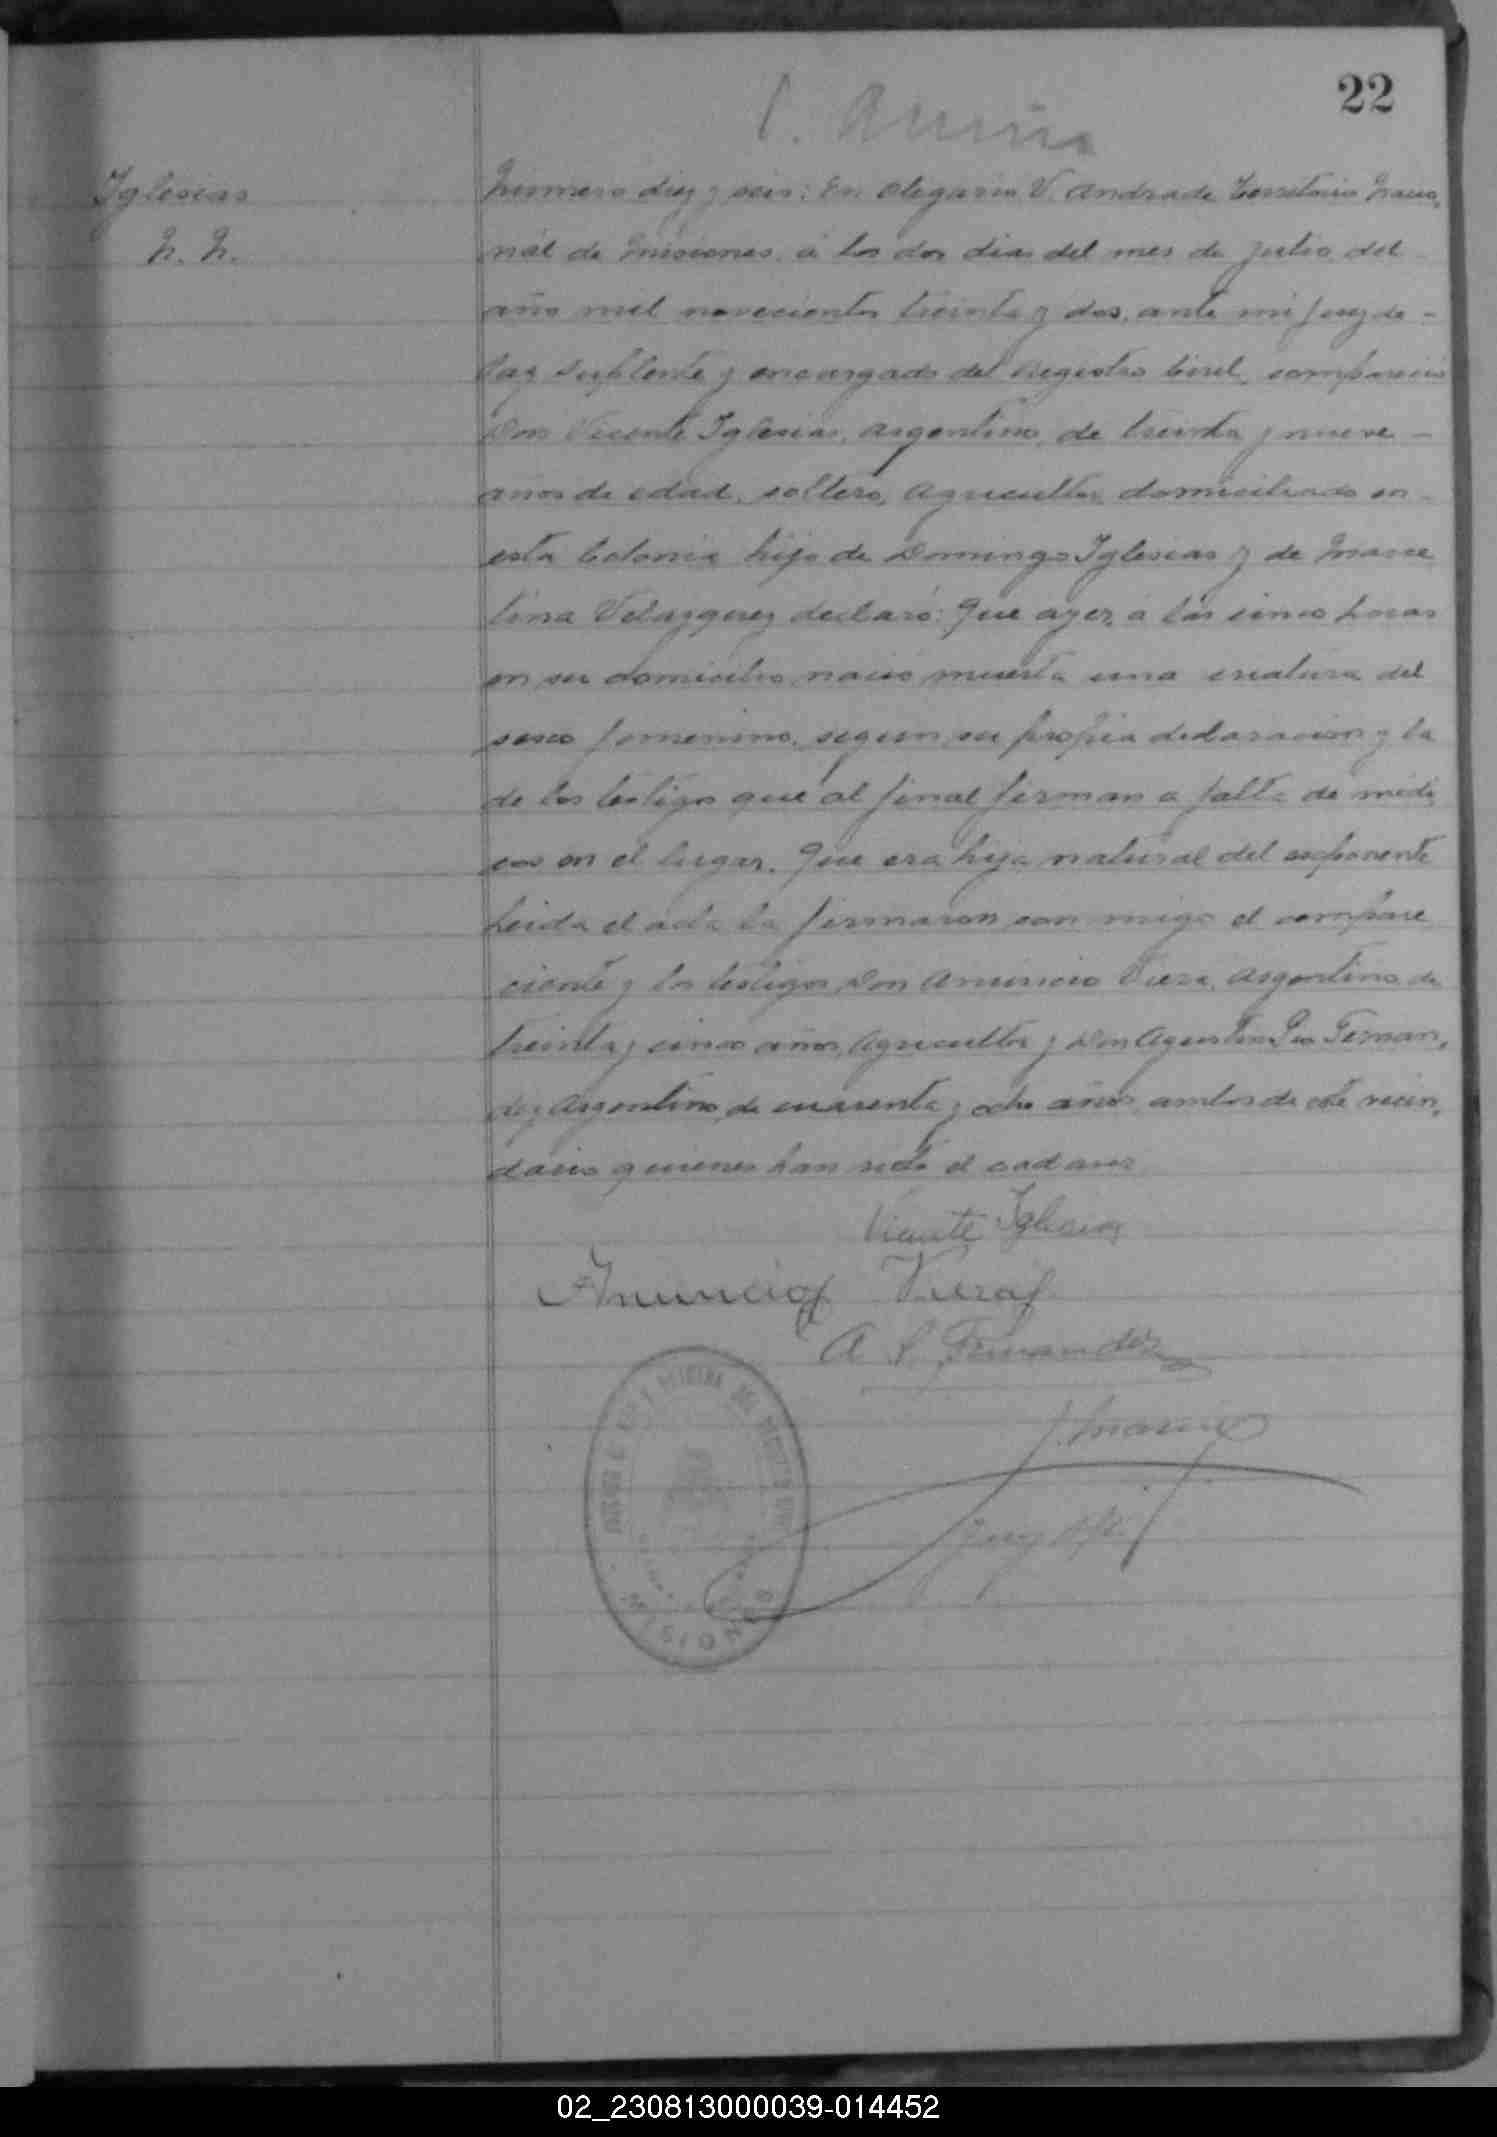 22
Iglesias
N. N.
Numero diez y seis: En Olegario V. Andrade Territorio Nacio,
nal de Misiones, á los dos dias del mes de julio del
año mil novecientos treinta y dos, ante mi Juez de -
Paz Suplente y encargado del Registro Civil, compareció
Don Vicente Iglesias, argentino, de treinta y nueve -
años de edad, soltero, agricultor, domiciliado en -
esta Colonia hijo de Domingo Iglesias y de Marce
lina Velazquez declaró: Que ayer á las cinco horas
en su domicilio nació muerta una criatura del
sexo femenino, segun su propia declaracion y la
de los testigos que al final firman a falta de medi
cos en el lugar. Que era hija natural del exponente
Leida el acta la firmaron con migo el compare
ciente y los testigos Don Anuncio Viera, Argentino, de
treinta y cinco años, Agricultor y Don Agustin Fernan,
dez Argentino, de cuarenta y ocho años, ambos de este vecin,
dario quienes han visto el cadaver
Vicente Iglesias
Anuncio Viera
A P. Fernandez
Juez
MISIONES
02_230813000039-014452